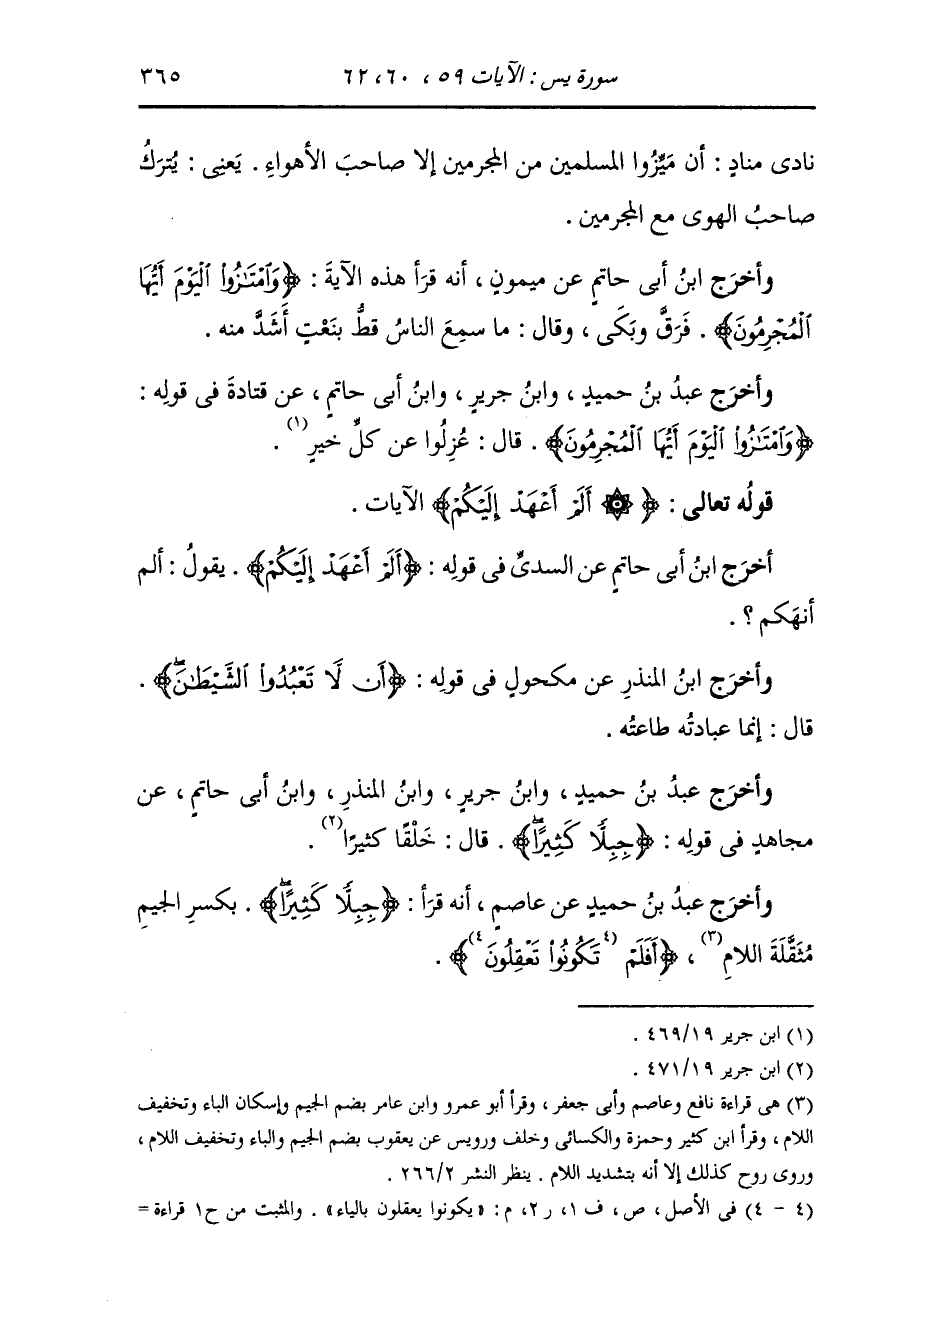 سورة يس : الآيات ٥٩ ، ٦٠، ٦٢ ٣٦٥
نادى منادٍ : أن مَيِّزُوا المسلمين من المجرمين إلا صاحبَ الأهواءِ . يَعنِى : يُتركُ
صاحبُ الهوى مع المجرمين .
وأخرَج ابنُ أبى حاتمٍ عن ميمونٍ ، أنه قرَأ هذه الآيةَ : ﴿وَٱمْتَـٰزُوا۟ ٱلْيَوْمَ أَيُّهَا
ٱلْمُجْرِمُونَ﴾ . فَرَقَّ وبَكَى ، وقال : ما سمِعَ الناسُ قطُّ بنَعْتٍ أَشَدَّ منه .
وأخرَج عبدُ بنُ حميدٍ ، وابنُ جريرٍ ، وابنُ أبى حاتمٍ ، عن قتادةَ فى قولِه :
﴿وَٱمْتَـٰزُوا۟ ٱلْيَوْمَ أَيُّهَا ٱلْمُجْرِمُونَ﴾ . قال : عُزِلُوا عن كلِّ خيرٍ(١) .
قولُه تعالى : ﴿ ۞ أَلَمْ أَعْهَدْ إِلَيْكُمْ﴾ الآيات .
أخرَج ابنُ أبى حاتمٍ عن السدىِّ فى قولِه : ﴿أَلَمْ أَعْهَدْ إِلَيْكُمْ﴾ . يقولُ : ألم
أنهَكم ؟ .
وأخرَج ابنُ المنذرِ عن مكحولٍ فى قولِه : ﴿أَن لَّا تَعْبُدُوا۟ ٱلشَّيْطَـٰنَۖ﴾ .
قال : إنما عبادتُه طاعتُه .
وأخرَج عبدُ بنُ حميدٍ ، وابنُ جريرٍ ، وابنُ المنذرِ ، وابنُ أبى حاتمٍ ، عن
مجاهدٍ فى قولِه : ﴿جِبِلًّا كَثِيرًاۖ﴾ . قال : خَلْقًا كثيرًا(٢) .
وأخرَج عبدُ بنُ حميدٍ عن عاصمٍ ، أنه قرَأ : ﴿جِبِلًّا كَثِيرًاۖ﴾ . بكسرِ الجيمِ
مُثَقَّلَةَ اللامِ(٣) ، ﴿أَفَلَمْ (٤تَكُونُوا۟ تَعْقِلُونَ٤)﴾ .
(١) ابن جرير ٤٦٩/١٩ .
(٢) ابن جرير ٤٧١/١٩ .
(٣) هى قراءة نافع وعاصم وأبى جعفر ، وقرأ أبو عمرو وابن عامر بضم الجيم وإسكان الباء وتخفيف
اللام ، وقرأ ابن كثير وحمزة والكسائى وخلف ورويس عن يعقوب بضم الجيم والباء وتخفيف اللام ،
وروى روح كذلك إلا أنه بتشديد اللام . ينظر النشر ٢٦٦/٢ .
(٤ - ٤) فى الأصل ، ص ، ف ١، ر ٢، م : «يكونوا يعقلون بالياء» . والمثبت من ح١ قراءة =